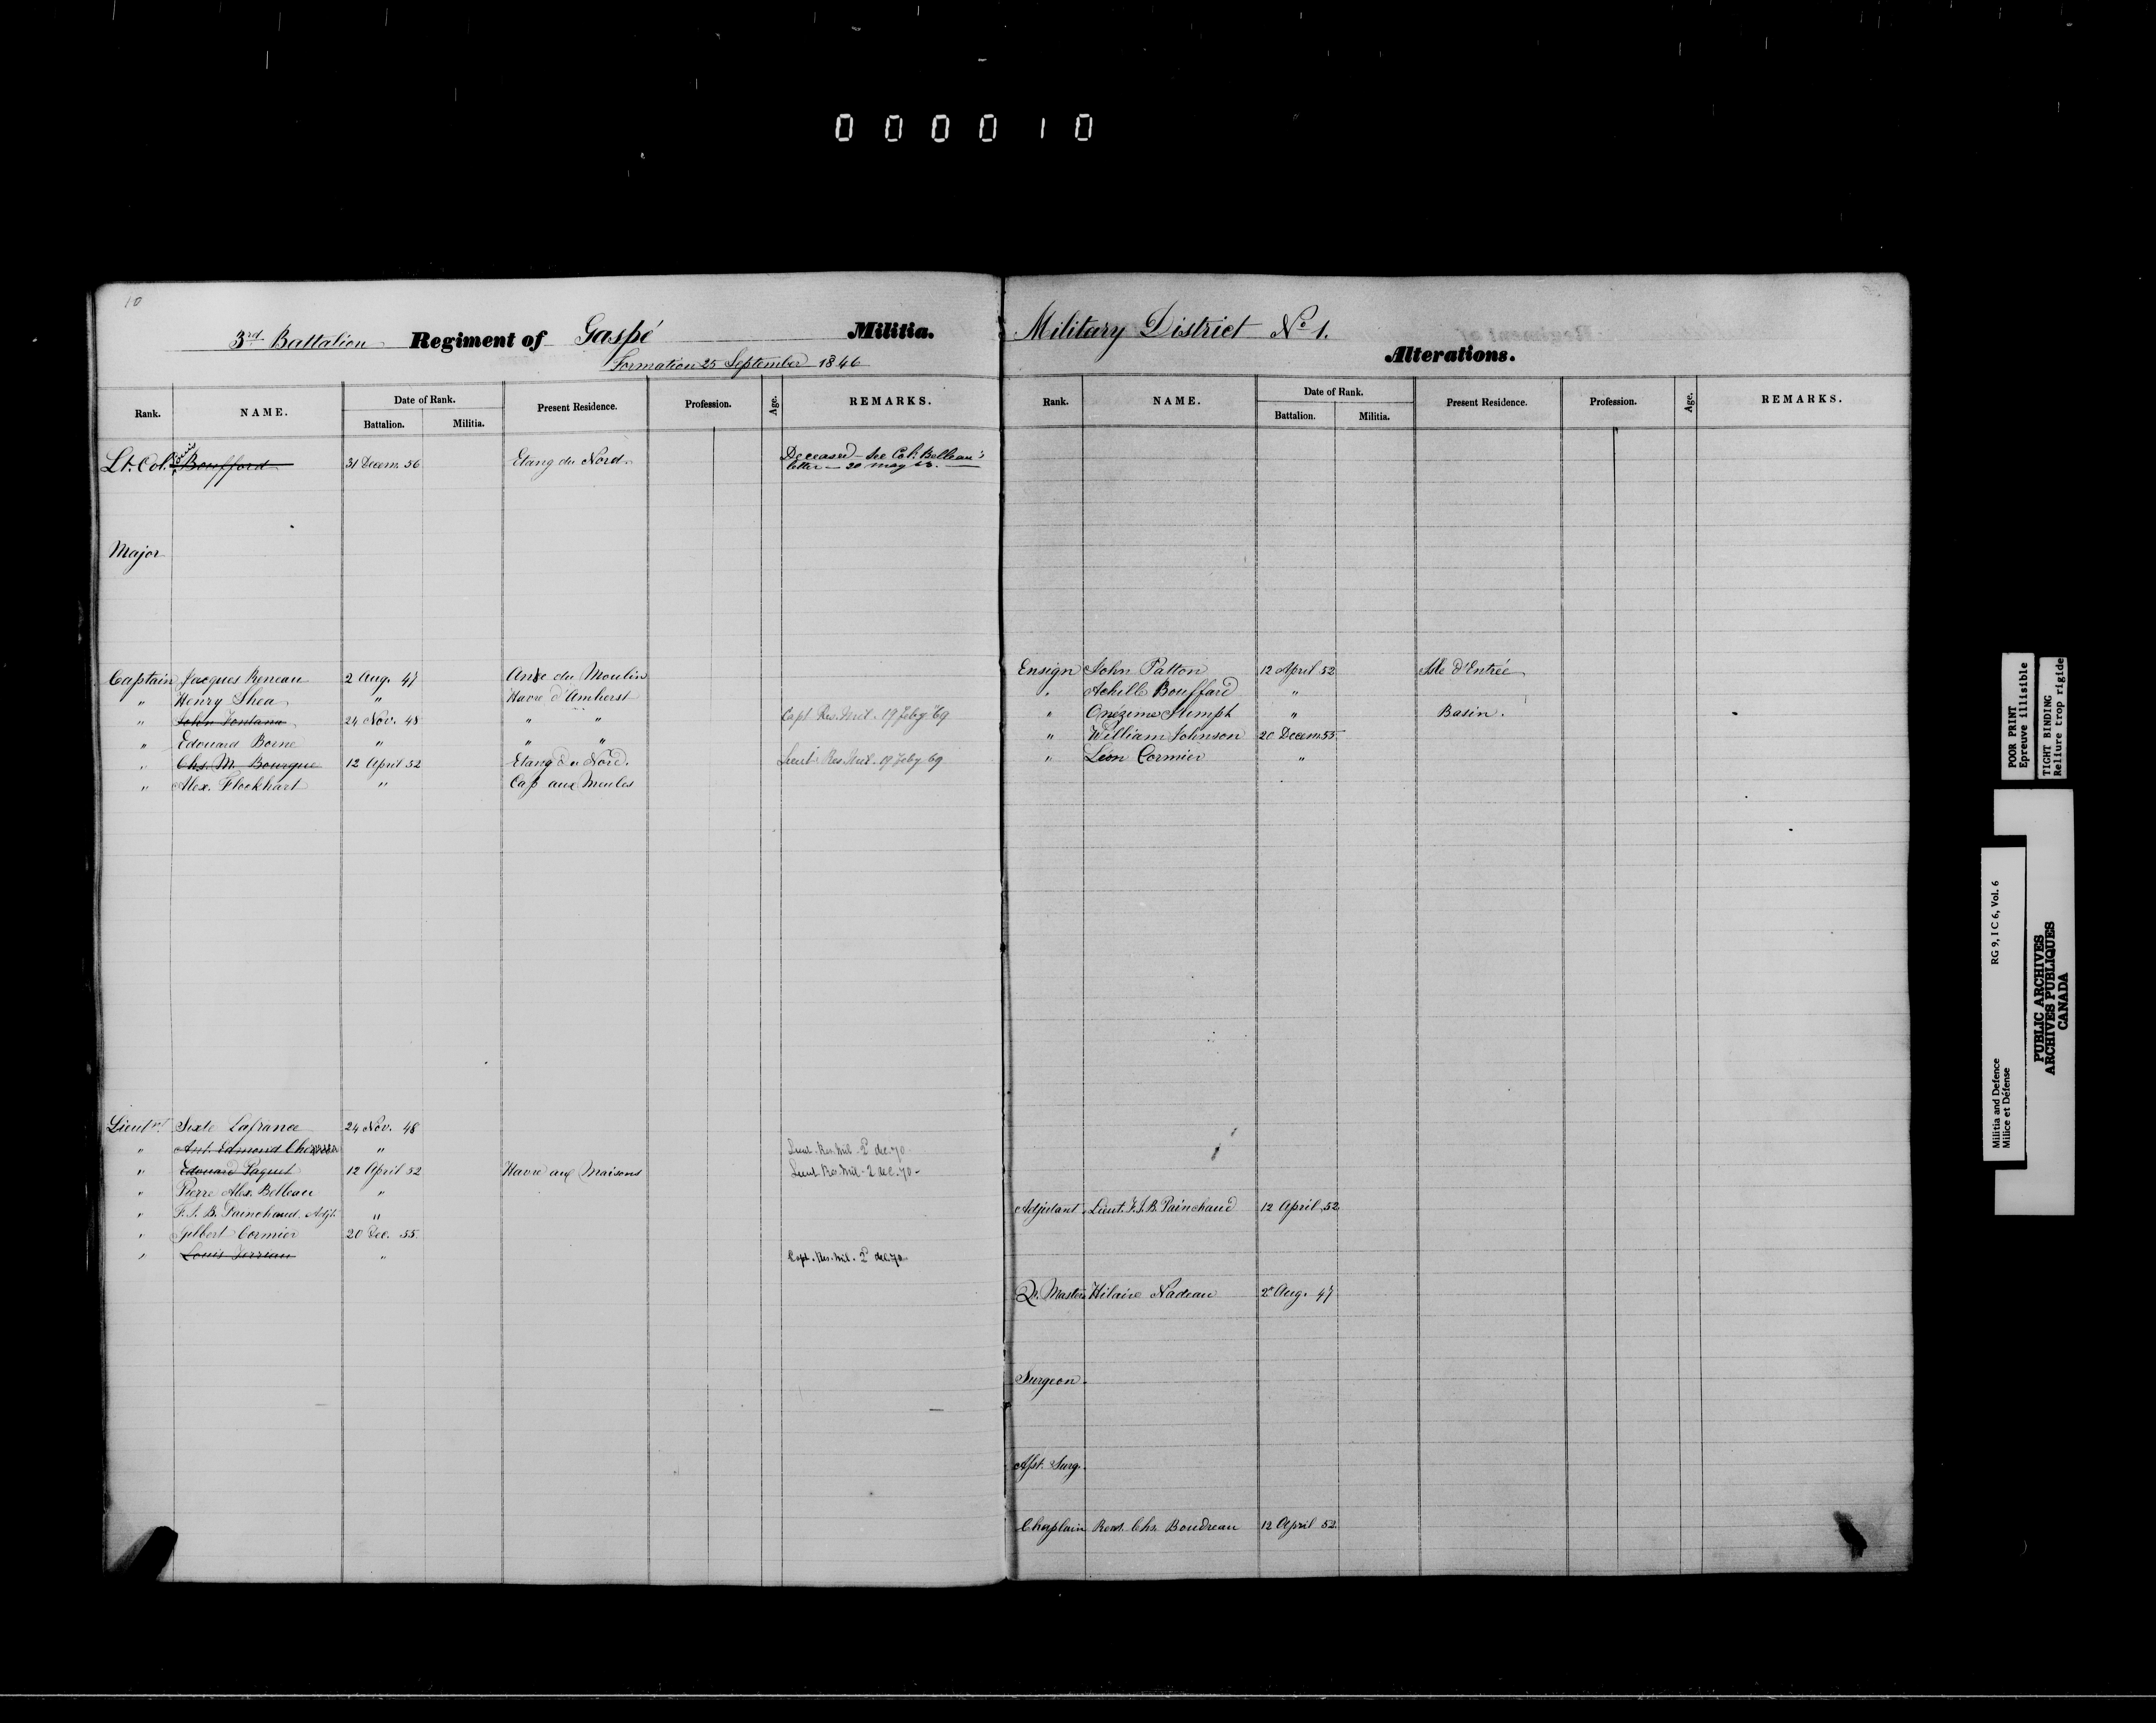 000010
10
3rd Battalion Regiment of Gaspé Militia.
Formation 25 September 1846
Rank. NAME. Date of Rank. Battalion. Militia. Present Residence. Profession. Age. REMARKS.
Lt. Col. Boufford 31 Decem. 56 Etang du Nord Deceased - See Col. Belleau's
letter - 20 may
Major
Captain Jacques Reneau 2 Aug. 47 Anse du Moulin
" Henry Shea " Havre d'Amherst
" John Fontana 24 Nov. 48 " " Capt Res. Mil. 19 Feby 69
" Edouard Borne " " "
" Chs. M. Bourque 12 April 52 Etang du Nord. Lieut Res Mil. 19 Feby 69
" Alex. Flockhart " Cap aux Meules
Lieutnt. Sixte Lafrance 24 Nov. 48
" Ant. Edmond " Lieut. Res. Mil. 2d dec. 70
" Edouard Paquet 12 April 52 Havre aux Maisons Lieut. Res. Mil. 2 dec. 70 -
" Pierre Alex. Belleau "
" F. J. B. Painchaud, Adjt. "
" Gilbert Cormier 20 Dec. 55
" Louis Terriau " Capt. Res. Mil. 2d dec. 70
Military District No. 1.
Alterations.
Rank. NAME. Date of Rank. Battalion. Militia. Present Residence. Profession. Age. REMARKS.
Ensign John Patton 12 April 52 Isle d'Entrée
" Achille Bouffard "
" Onézime Stumph " Basin.
" William Johnson 20 Decem 55
" Léon Cormier "
Adjutant Lieut. F. J. B. Painchaud 12 April 52
Qr. Master Hilaire Nadeau 2d Aug. 47
Surgeon
Asst. Surg.
Chaplain Revd. Chs. Boudreau 12 April 52
POOR PRINT
Epreuve illisible
TIGHT BINDING
Reliure trop rigide
Militia and Defence RG 9, I C 6, Vol. 6
Milice et Défense
PUBLIC ARCHIVES
ARCHIVES PUBLIQUES
CANADA